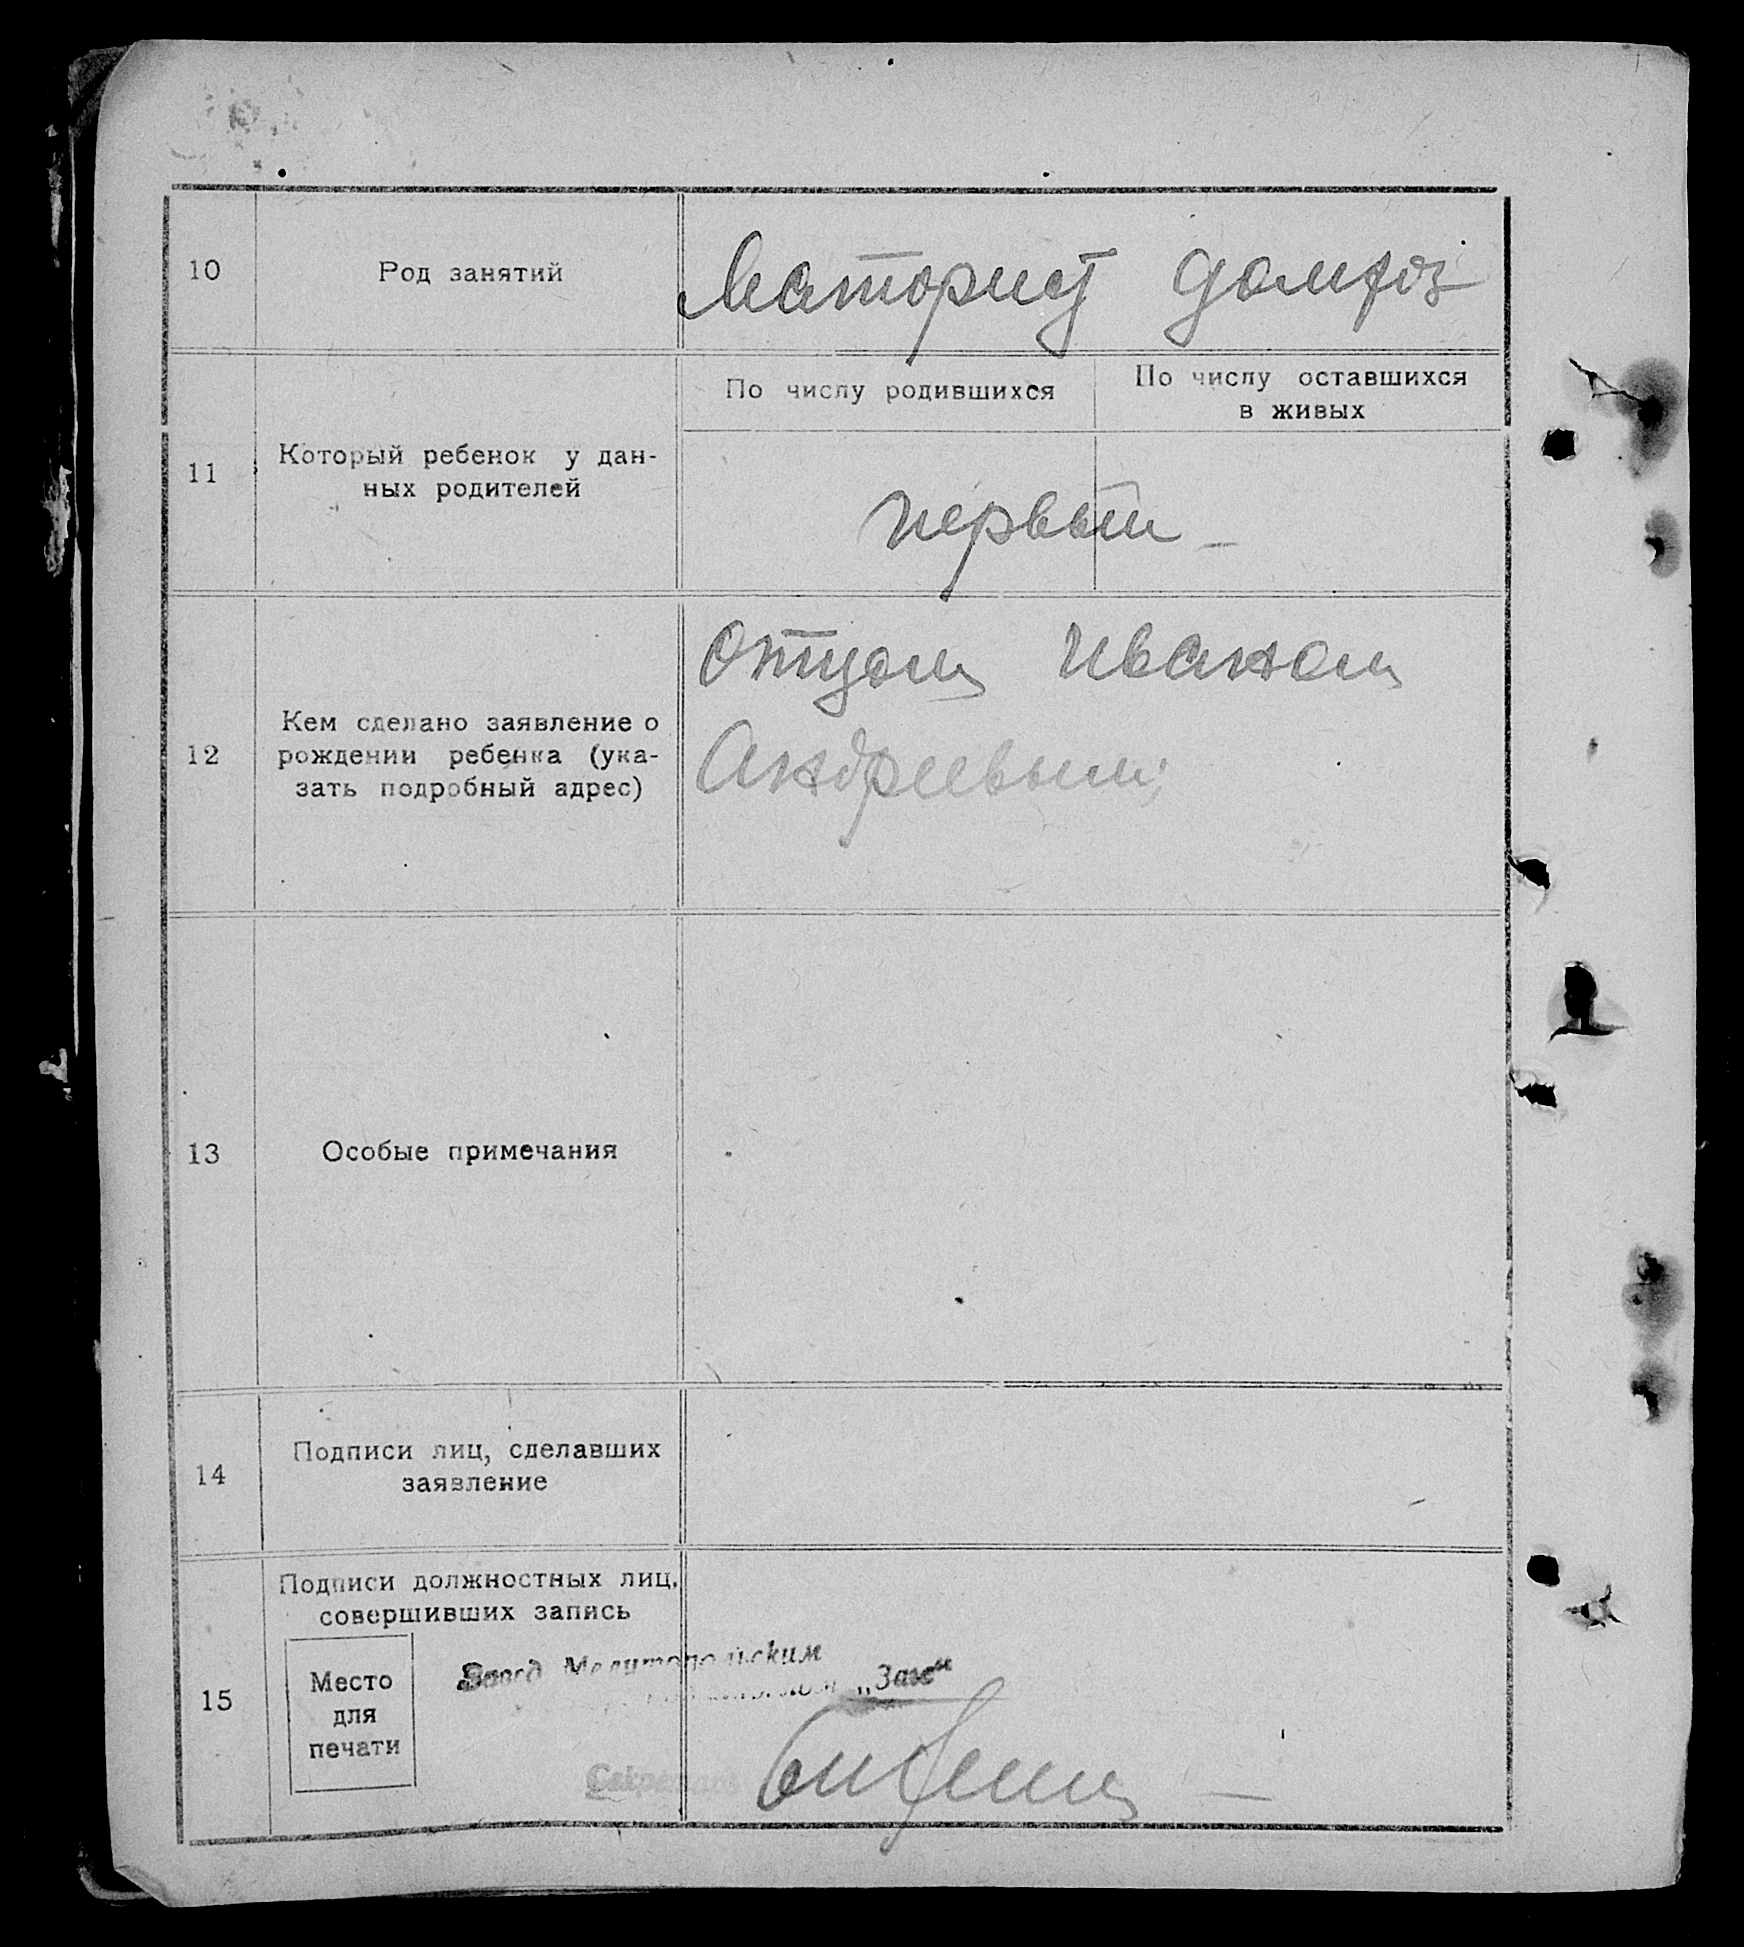 10
Род занятий
Моторист
11
Который ребенок у дан-
ных родителей
По числу родившихся
По числу оставшихся
в живых
первый
12
Кем сделано заявление о
рождении ребенка (ука-
зать подробный адрес)
Отцом Иваном
Андреевым
13
Особые примечания
14
Подписи лиц, сделавших
заявление
15
Подписи должностных лиц,
совершивших запись
Место
для
печати
Мелитопольским
„Загс“